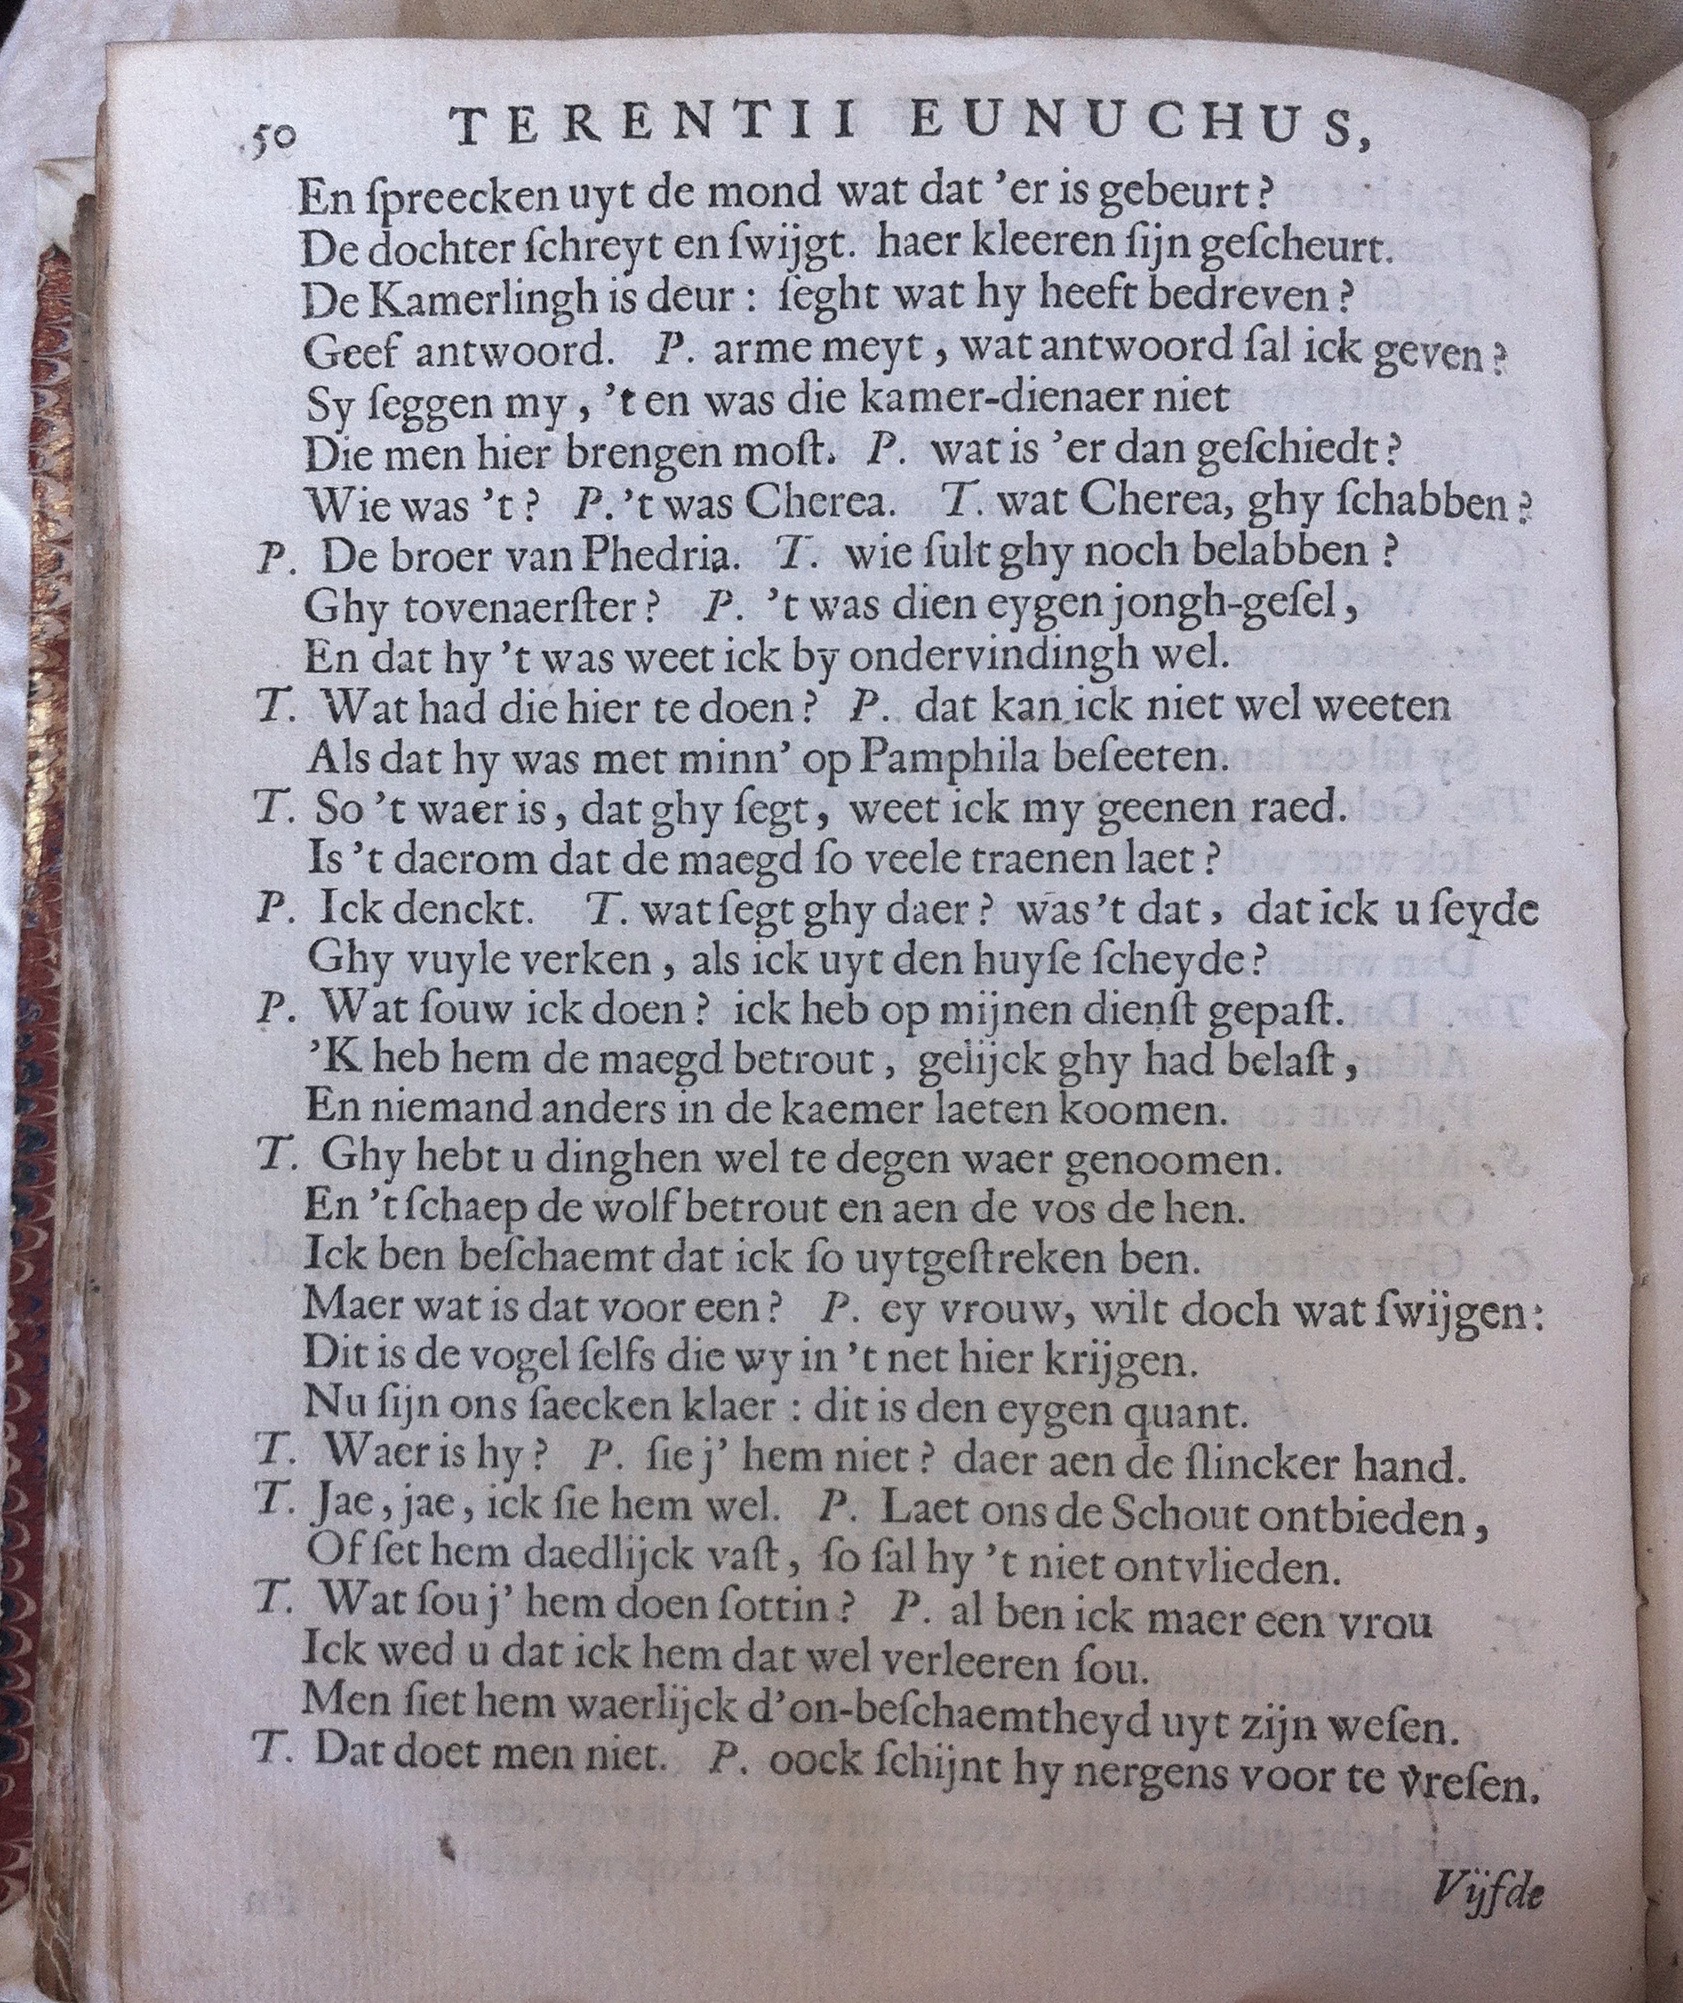 50 TERENTII EUNUCHUS,
En ſpreecken uyt de mond wat dat ’er is gebeurt?
De dochter ſchreyt en ſwijgt. haer kleeren ſijn geſcheurt.
De Kamerlingh is deur: ſeght wat hy heeft bedreven?
Geef antwoord. P. arme meyt, wat antwoord ſal ick geven?
Sy ſeggen my, ’t en was die kamer-dienaer niet
Die men hier brengen moſt. P. wat is ’er dan geſchiedt?
Wie was ’t? P. ’t was Cherea. T. wat Cherea, ghy ſchabben?
P. De broer van Phedria. T. wie ſult ghy noch belabben?
Ghy tovenaerſter? P. ’t was dien eygen jongh-geſel,
En dat hy ’t was weet ick by ondervindingh wel.
T. Wat had die hier te doen? P. dat kan ick niet wel weeten
Als dat hy was met minn’ op Pamphila beſeeten.
T. So ’t waer is, dat ghy ſegt, weet ick my geenen raed.
Is ’t daerom dat de maegd ſo veele traenen laet?
P. Ick denckt. T. wat ſegt ghy daer? was ’t dat, dat ick u ſeyde
Ghy vuyle verken, als ick uyt den huyſe ſcheyde?
P. Wat ſouw ick doen? ick heb op mijnen dienſt gepaſt.
’K heb hem de maegd betrout, gelijck ghy had belaſt,
En niemand anders in de kaemer laeten koomen.
T. Ghy hebt u dinghen wel te degen waer genoomen.
En ’t ſchaep de wolf betrout en aen de vos de hen.
Ick ben beſchaemt dat ick ſo uytgeſtreken ben.
Maer wat is dat voor een? P. ey vrouw, wilt doch wat ſwijgen:
Dit is de vogel ſelfs die wy in ’t net hier krijgen.
Nu ſijn ons ſaecken klaer: dit is den eygen quant.
T. Waer is hy? P. ſie j’ hem niet? daer aen de ſlincker hand.
T. Jae, jae, ick ſie hem wel. P. Laet ons de Schout ontbieden,
Of ſet hem daedlijck vaſt, ſo ſal hy ’t niet ontvlieden.
T. Wat ſou j’ hem doen ſottin? P. al ben ick maer een vrou
Ick wed u dat ick hem dat wel verleeren ſou.
Men ſiet hem waerlijck d’on-beſchaemtheyd uyt zijn weſen.
T. Dat doet men niet. P. oock ſchijnt hy nergens voor te vreſen.
Vijfde